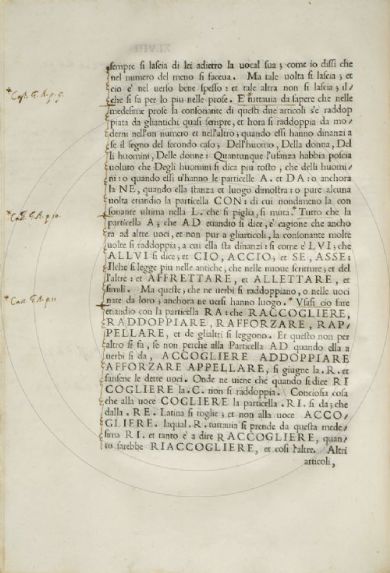 sempre si lascia di lei adietro la uocal sua; come io dissi che
nel numero del meno si faceua. Ma tale uolta si lascia; et
cio è nel uerso bene spesso: et tale altra non si lascia; il/
che si fa per lo piu nelle prose. E tuttauia da sapere che nelle
medesime prose la consonante di questi due articoli s'è radop
piata da gliantichi quasi sempre, et hora si raddoppia da mo/
derni nell'un numero et nell'altro; quando essi hanno dinanzi a
se il segno del secondo caso; Dell'huomo, Della donna, Del
li huomini, Delle donne: Quantunque l'usanza habbia poscia
uoluto che Degli huomini si dica piu tosto, che delli huomi/
ni: o quando essi u'hanno le particelle A. et DA: o anchora
la NE, quando ella stanza et luogo dimostra: o pure alcuna
uolta etiandio la particella CON: di cui nondameno la con
sonante ultima nella L. che si piglia, si muta. Tutto che la
particella A; che AD etiandio si dice, è cagione che ancho
ra ad altre uoci, et non pur a gliarticoli, la consonante molte
uolte si raddoppia, a cui ella sta dinanzi: si come è LVI; che
ALLVI si dice; et CIO, ACCIO; et SE, ASSE:
Ilche si legge piu nelle antiche, che nelle nuoue scritture; et del
l'altre: et AFFRETTARE, et ALLETTARE, et
simili. Ma queste; che ne uerbi si raddoppiano, o nelle uoci
nate da loro; anchora ne uersi hanno luogo. Vsasi cio fare
etiandio con la particella RA: che RACCOGLIERE,
RADDOPPIARE RAFFORZARE, RAP/
PELLARE, et de glialtri si leggono. Et questo non per
altro si fa, se non perche alla Particella AD quando ella a
uerbi si da, ACCOGLIERE ADDOPPIARE
AFFORZARE APPELLARE, si giugne la .R. et
fansene le dette uoci. Onde ne uiene che quando si dice RI
COGLIERE la .C. non si raddoppia. Conciosia cosa
che alla uoce COGLIERE la particella .RI. si da; che
dalla .RE. Latina si toglie; et non alla uoce ACCO/
GLIERE. laqual .R. tuttauia si prende da questa mede/
sima RI. et tanto è a dire RACCOGLIERE, quan/
to sarebbe RIACCOGLIERE, et cosi l'altre. Altri
articoli,